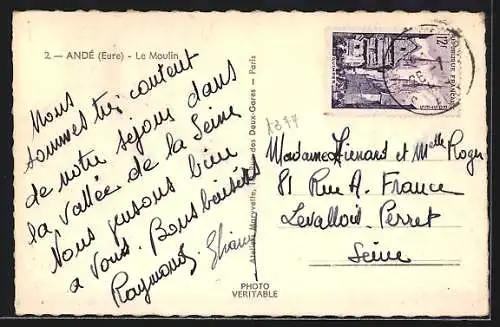 2. — ANDÉ (Eure) - Le Moulin
Nous
sommes très content
de notre séjour dans
la vallée de la Seine
Nous pensons bien
a Vous. Bons baisers
Raymonde Eliane
Madame Hienard et Melle Roger
81 Rue A. France
Levallois. Perret
Seine
12F
RÉPUBLIQUE FRANÇAISE
QUIMPER
des Deux-Gares - Paris
PHOTO
VERITABLE